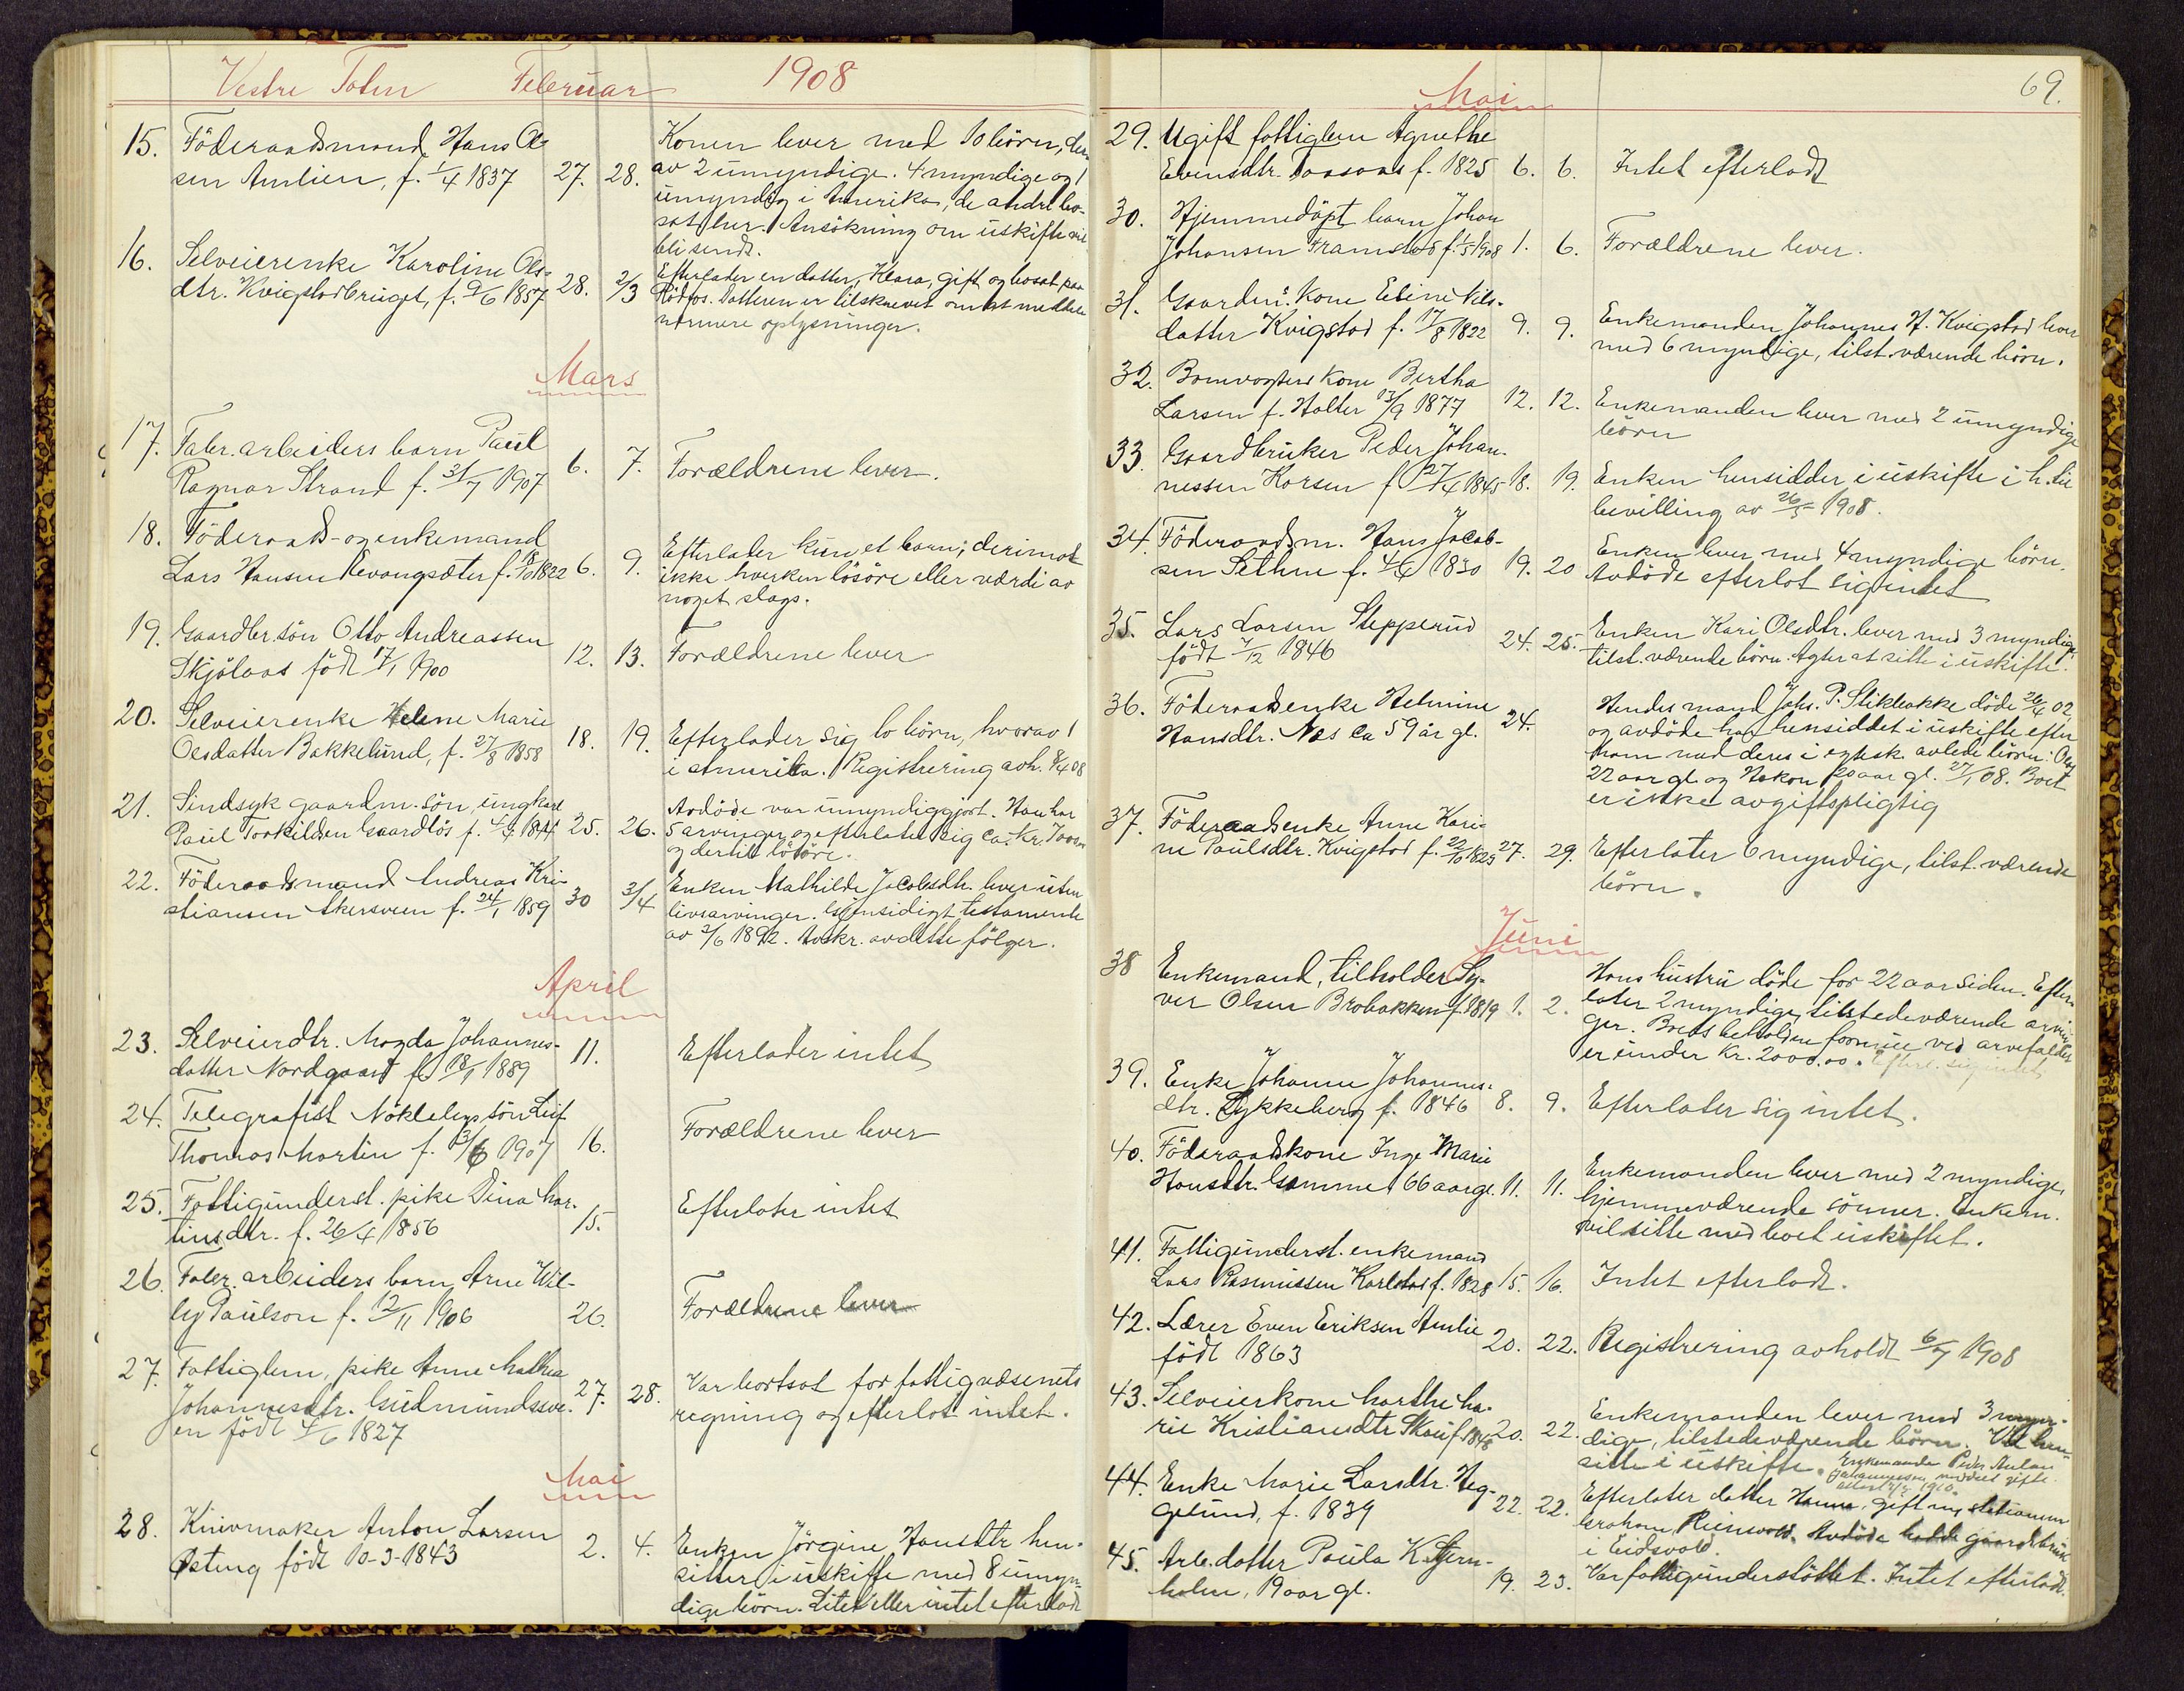 Vestre Toten Februar 1908
15. Föderaadsmand Hans Ol-
sen Amlien, f. 1/4 1837 27. 28.
Konen lever med 10 börn, der-
av 2 umyndige. 4 myndige og 1
umyndig i Amerika, de andre bo-
sat her. Ansökning om uskifte vil
bli sendt.
16. Selveierenke Karoline Ols-
dtr. Kvigstadbruget, f. 9/6 1857 28. 2/3
Efterlader en datter, Klara, gift og bosat paa
Rödfos. Datteren er tilskrevet om at meddele
nærmere oplysninger.
Mars
17. Fabr. arbeiders barn Paul
Ragnar Strand f. 31/7 1907 6. 7. Forældrene lever.
18. Föderaads- og enkemand
Lars Hansen Revangsæter f. 18/10 1822 6. 9.
Efterlader kun et barn; derimot
ikke hverken lösöre eller værdi av
noget slags.
19. Gaardbr. sön Otto Andreassen
Skjölaas födt 17/1 1900 12. 13. Forældrene lever
20. Selveierenke Helene Marie
Olsdatter Bakkelund, f. 27/8 1858 18. 19.
Efterlader sig 10 börn, hvorav 1
i Amerika. Registrering avh. 8/4 08
21. Sindsyk gaardm. sön, ungkarl
Paul Torkildsen Gaardlös f. 25. 26.
Avdöde var umyndiggjort. Han har
5 arvinger og efterlater sig ca. Kr.
og dertil lösöre.
22. Föderaadsmand Andreas Kri-
stiansen Akersveen f. 24/1 1859 30 3/4
Enken Mathilde Jacobsdtr. lever uten
livsarvinger. Gjensidigt testamente
av 2/6 1892. Avskr. av dette fölger.
April
23. Selveierdtr. Magda Johannes-
datter Nordgaard f. 18/1 1889 11. Efterlader intet
24. Telegrafist Nöklebys sön Leif
Thomas Martin f. 3/6 1907 16. Forældrene lever
25. Fattigunderst. pike Dina Mar-
tinsdtr. f. 26/4 1856 15. Efterlater intet
26. Fabr. arbeiders barn Arne Wil-
ly Paulson f. 12/11 1906 26. Forældrene lever
27. Fattiglem, pike Anne Mathea
Johannesdtr. Gudmundsve-
en födt 4/6 1827 27. 28.
Var bortsat for fattigvæsenets
regning og efterlot intet.
Mai
28. Knivmaker Anton Larsen
Östeng födt 10-3-1843 2. 4.
Enken Jörgine Hansdtr hen-
sitter i uskifte med 8 umyn-
dige börn. Litet eller intet efterladt
69.
Mai
29. Ugift fattiglem Agnethe
Evensdtr. Taasaas f. 1825 6. 6. Intet efterladt
30. Hjemmedöpt barn Johan
Johansen Framstad f. 1/5 1908 1. 6. Forældrene lever.
31. Gaardm. kone Eline Nils-
datter Kvigstad f. 17/8 1822 9. 9.
Enkemanden Johannes H. Kvigstad lever
med 6 myndige, tilst. værende börn.
32. Bomvogters kone Bertha
Larsen f. Holter 13/9 1877 12. 12.
Enkemanden lever med 2 umyndige
börn
33. Gaardbruker Peder Johan-
nessen Korsen f. 27/4 1845 18. 19.
Enken hensidder i uskifte i h. til
bevilling av 26/5 1908.
34. Föderaadsm. Hans Jacob-
sen Sethne f. 4/4 1830 19. 20
Enken lever med 4 myndige börn.
Avdöde efterlot sig intet
35. Lars Larsen Stepperud
födt 7/12 1846 24. 25.
Enken Kari Olsdtr. lever med 3 myndige
tilst. værende börn. Agter at sitte i uskifte.
36. Föderaadsenke Helmine
Hansdtr. Næs ca 59 år gl. 24.
Hendes mand Johs. P. Slikbakke döde 26/4 02
og avdöde har hensiddet i uskifte efter
ham med deres i egtesk. avlede börn: Olaf
22 aar gl. og Hakon 20 aar gl. 27/1 08. Boet
er ikke avgiftspligtig
37. Föderaadsenke Anne Kari-
ne Paulsdtr. Kvigstad f. 22/10 1825 27. 29.
Efterlater 6 myndige, tilst. værende
börn.
Juni
38 Enkemand, tilholder Sy-
ver Olsen Brobakken f. 1819 1. 2.
Hans hustru döde for 22 aar siden. Efter-
later 2 myndige, tilstedeværende arvin-
ger. Boets beholdne formue ved arvefaldet
er under Kr. 2000.00. Efterl. sig intet
39. Enke Johanne Johannes-
dtr. Lykkeberg f. 1846 8. 9. Efterlater sig intet.
40. Föderaadskone Inge Marie
Hansdtr. Gamme, 66 aar gl. 11. 11.
Enkemanden lever med 2 myndige,
hjemmeværende sönner. Enkem.
vil sitte med boet uskiftet.
41. Fattigunderst. enkemand
Lars Rasmussen Karlstad f. 1828 15. 16. Intet efterladt.
42. Lærer Even Eriksen Amlie
födt 1863 20. 22. Registrering avholdt 6/7 1908
43. Selveierkone Marthe Ma-
rie Kristiansdtr Skau f. 1848 20. 22.
Enkemanden lever med 3 myn-
dige, tilstedeværende börn. Vil hen-
sitte i uskifte. Enkemande Peder Anton
Johannessen meddelt skifte
attest 1910.
44. Enke Marie Larsdtr. Heg-
gelund, f. 1839 22. 22.
Efterlater datter Hanna, gift m. stationm
Abraham Riensvold. Avdöde hadde gaardsbruk
i Eidsvold.
45. Arb. datter Paula K. Stjern-
holm, 19 aar gl. 19. 23. Var fattigunderstöttet. Intet efterladt.